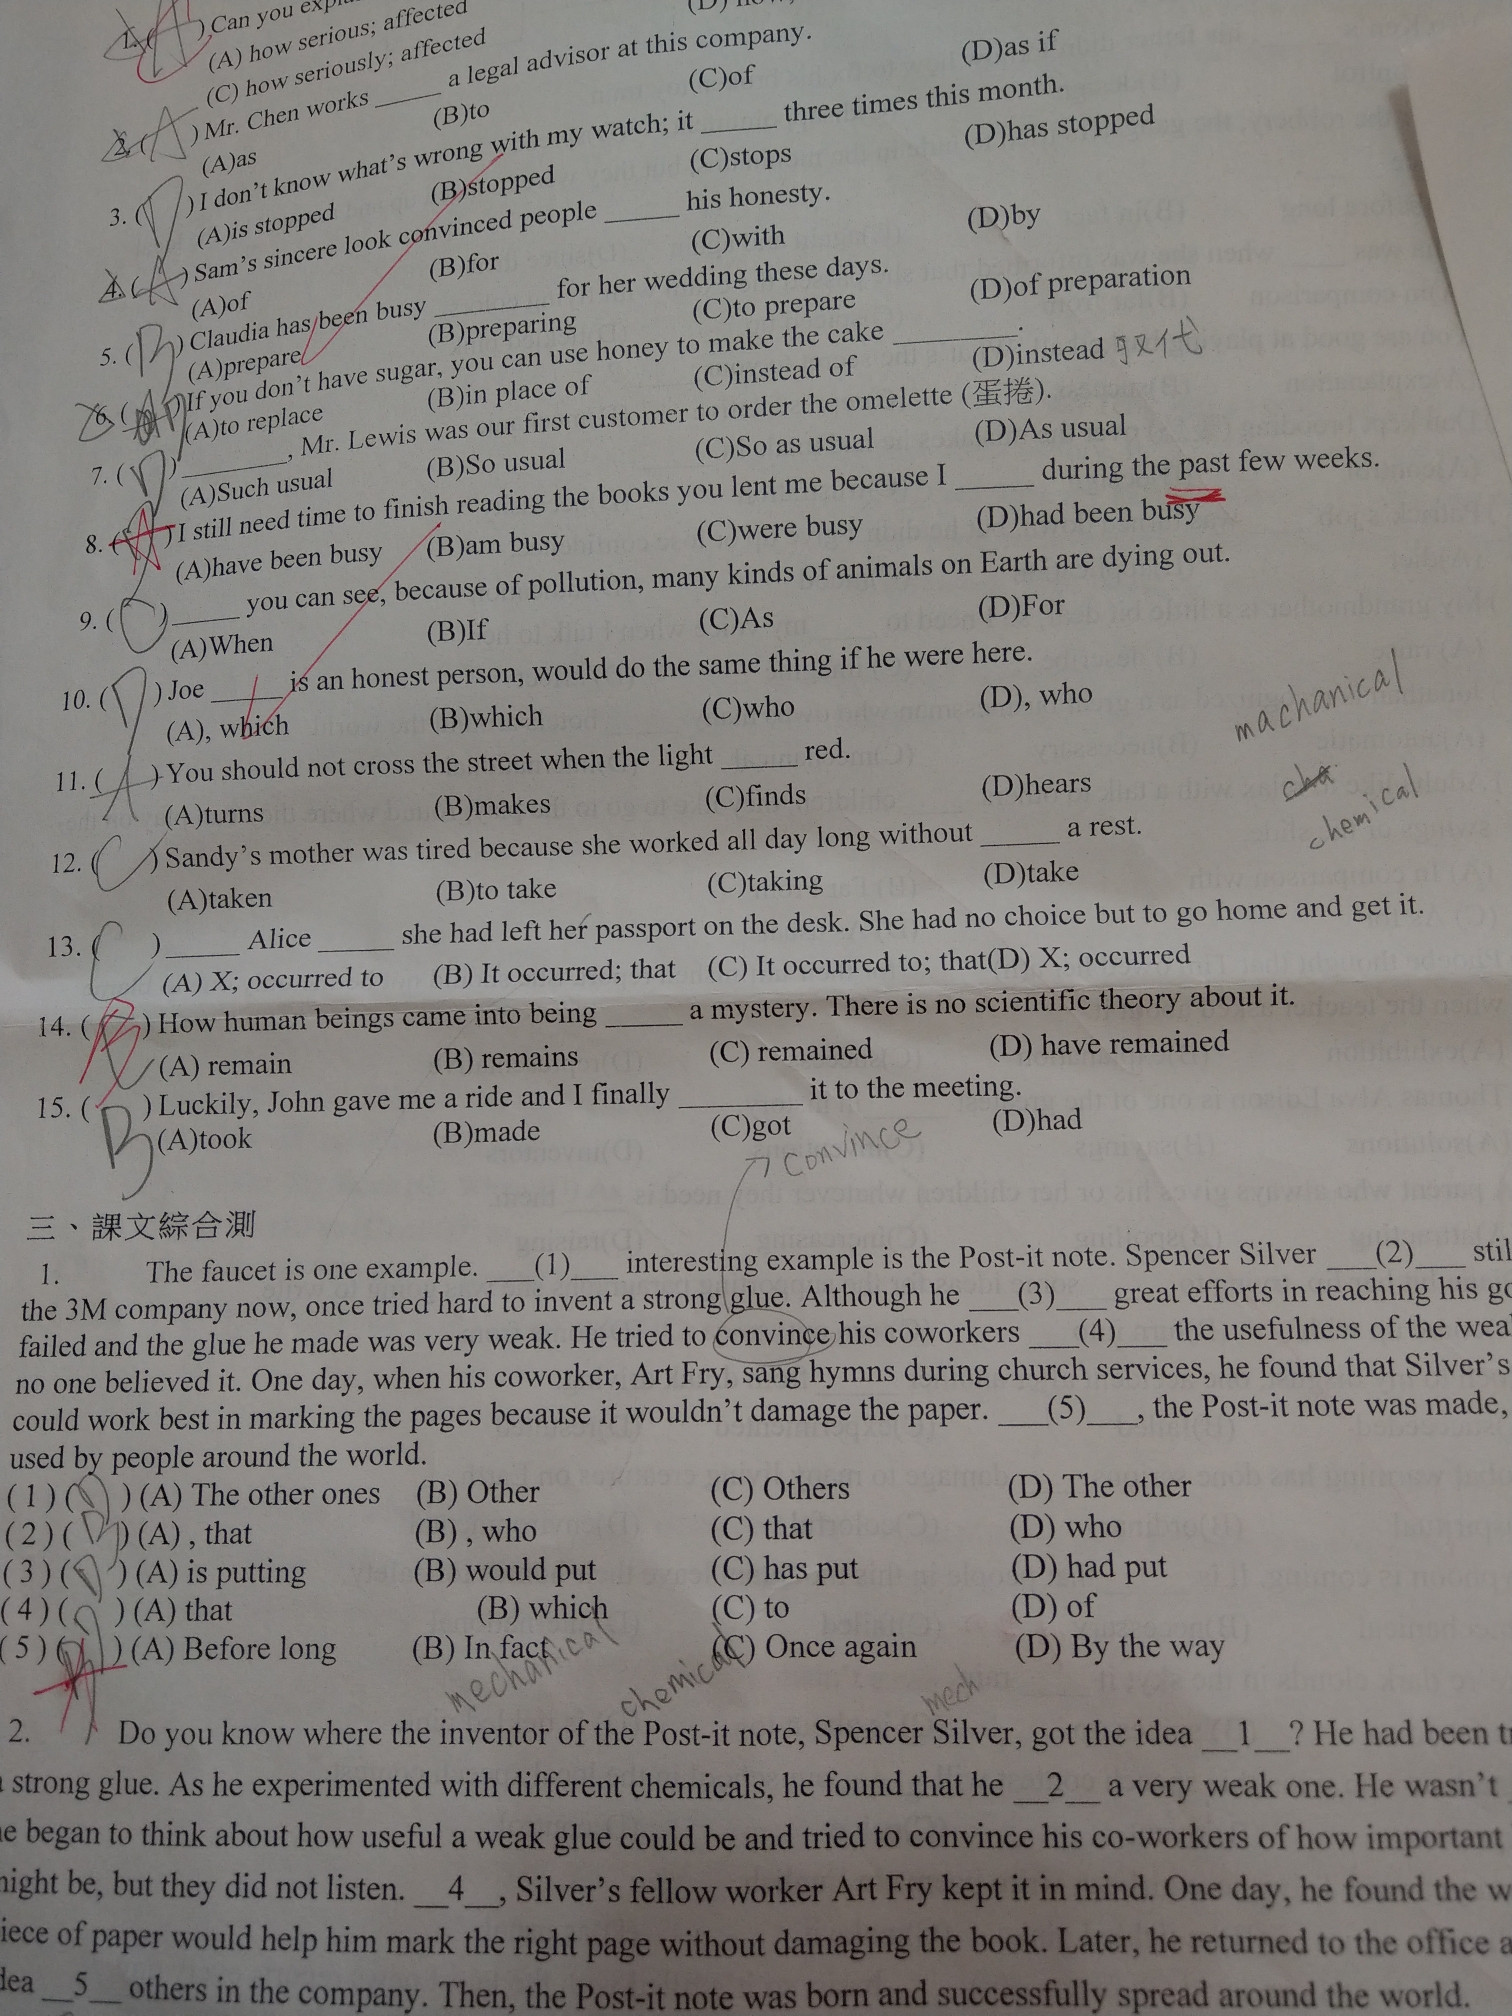 Can you
(A) how serious; affected
(C) how seriously; affected
(A) Mr. Chen works _____ a legal advisor at this company.
(A)as (B)to (C)of (D)as if
3. (D) I don't know what's wrong with my watch; it _____ three times this month.
(A)is stopped (B)stopped (C)stops (D)has stopped
4. (A) Sam's sincere look convinced people _____ his honesty.
(A)of (B)for (C)with (D)by
5. (B) Claudia has been busy _____ for her wedding these days.
(A)prepare (B)preparing (C)to prepare (D)of preparation
6. ( ) If you don't have sugar, you can use honey to make the cake _____.
(A)to replace (B)in place of (C)instead of (D)instead 取代
7. (D) _____, Mr. Lewis was our first customer to order the omelette (蛋捲).
(A)Such usual (B)So usual (C)So as usual (D)As usual
8. (A) I still need time to finish reading the books you lent me because I _____ during the past few weeks.
(A)have been busy (B)am busy (C)were busy (D)had been busy
9. (C) _____ you can see, because of pollution, many kinds of animals on Earth are dying out.
(A)When (B)If (C)As (D)For
10. (D) Joe _____ is an honest person, would do the same thing if he were here.
(A), which (B)which (C)who (D), who
machanical
11. (A) You should not cross the street when the light _____ red.
(A)turns (B)makes (C)finds (D)hears
cha
chemical
12. (C) Sandy's mother was tired because she worked all day long without _____ a rest.
(A)taken (B)to take (C)taking (D)take
13. (C) _____ Alice _____ she had left her passport on the desk. She had no choice but to go home and get it.
(A) X; occurred to (B) It occurred; that (C) It occurred to; that(D) X; occurred
14. (B) How human beings came into being _____ a mystery. There is no scientific theory about it.
(A) remain (B) remains (C) remained (D) have remained
15. (B) Luckily, John gave me a ride and I finally _____ it to the meeting.
(A)took (B)made (C)got (D)had
convince
三、課文綜合測
1. The faucet is one example. ___(1)___ interesting example is the Post-it note. Spencer Silver ___(2)___
the 3M company now, once tried hard to invent a strong glue. Although he ___(3)___ great efforts in reaching his
failed and the glue he made was very weak. He tried to convince his coworkers ___(4)___ the usefulness of the
no one believed it. One day, when his coworker, Art Fry, sang hymns during church services, he found that Silver's
could work best in marking the pages because it wouldn't damage the paper. ___(5)___, the Post-it note was made,
used by people around the world.
(1) ( ) (A) The other ones (B) Other (C) Others (D) The other
(2) (D) (A) , that (B) , who (C) that (D) who
(3) ( ) (A) is putting (B) would put (C) has put (D) had put
(4) ( ) (A) that (B) which (C) to (D) of
(5) (A) (A) Before long (B) In fact (C) Once again (D) By the way
mechanical chemical mech
2. Do you know where the inventor of the Post-it note, Spencer Silver, got the idea __1__? He had been
strong glue. As he experimented with different chemicals, he found that he __2__ a very weak one. He wasn't
began to think about how useful a weak glue could be and tried to convince his co-workers of how important
be, but they did not listen. __4__, Silver's fellow worker Art Fry kept it in mind. One day, he found the
of paper would help him mark the right page without damaging the book. Later, he returned to the office
__5__ others in the company. Then, the Post-it note was born and successfully spread around the world.